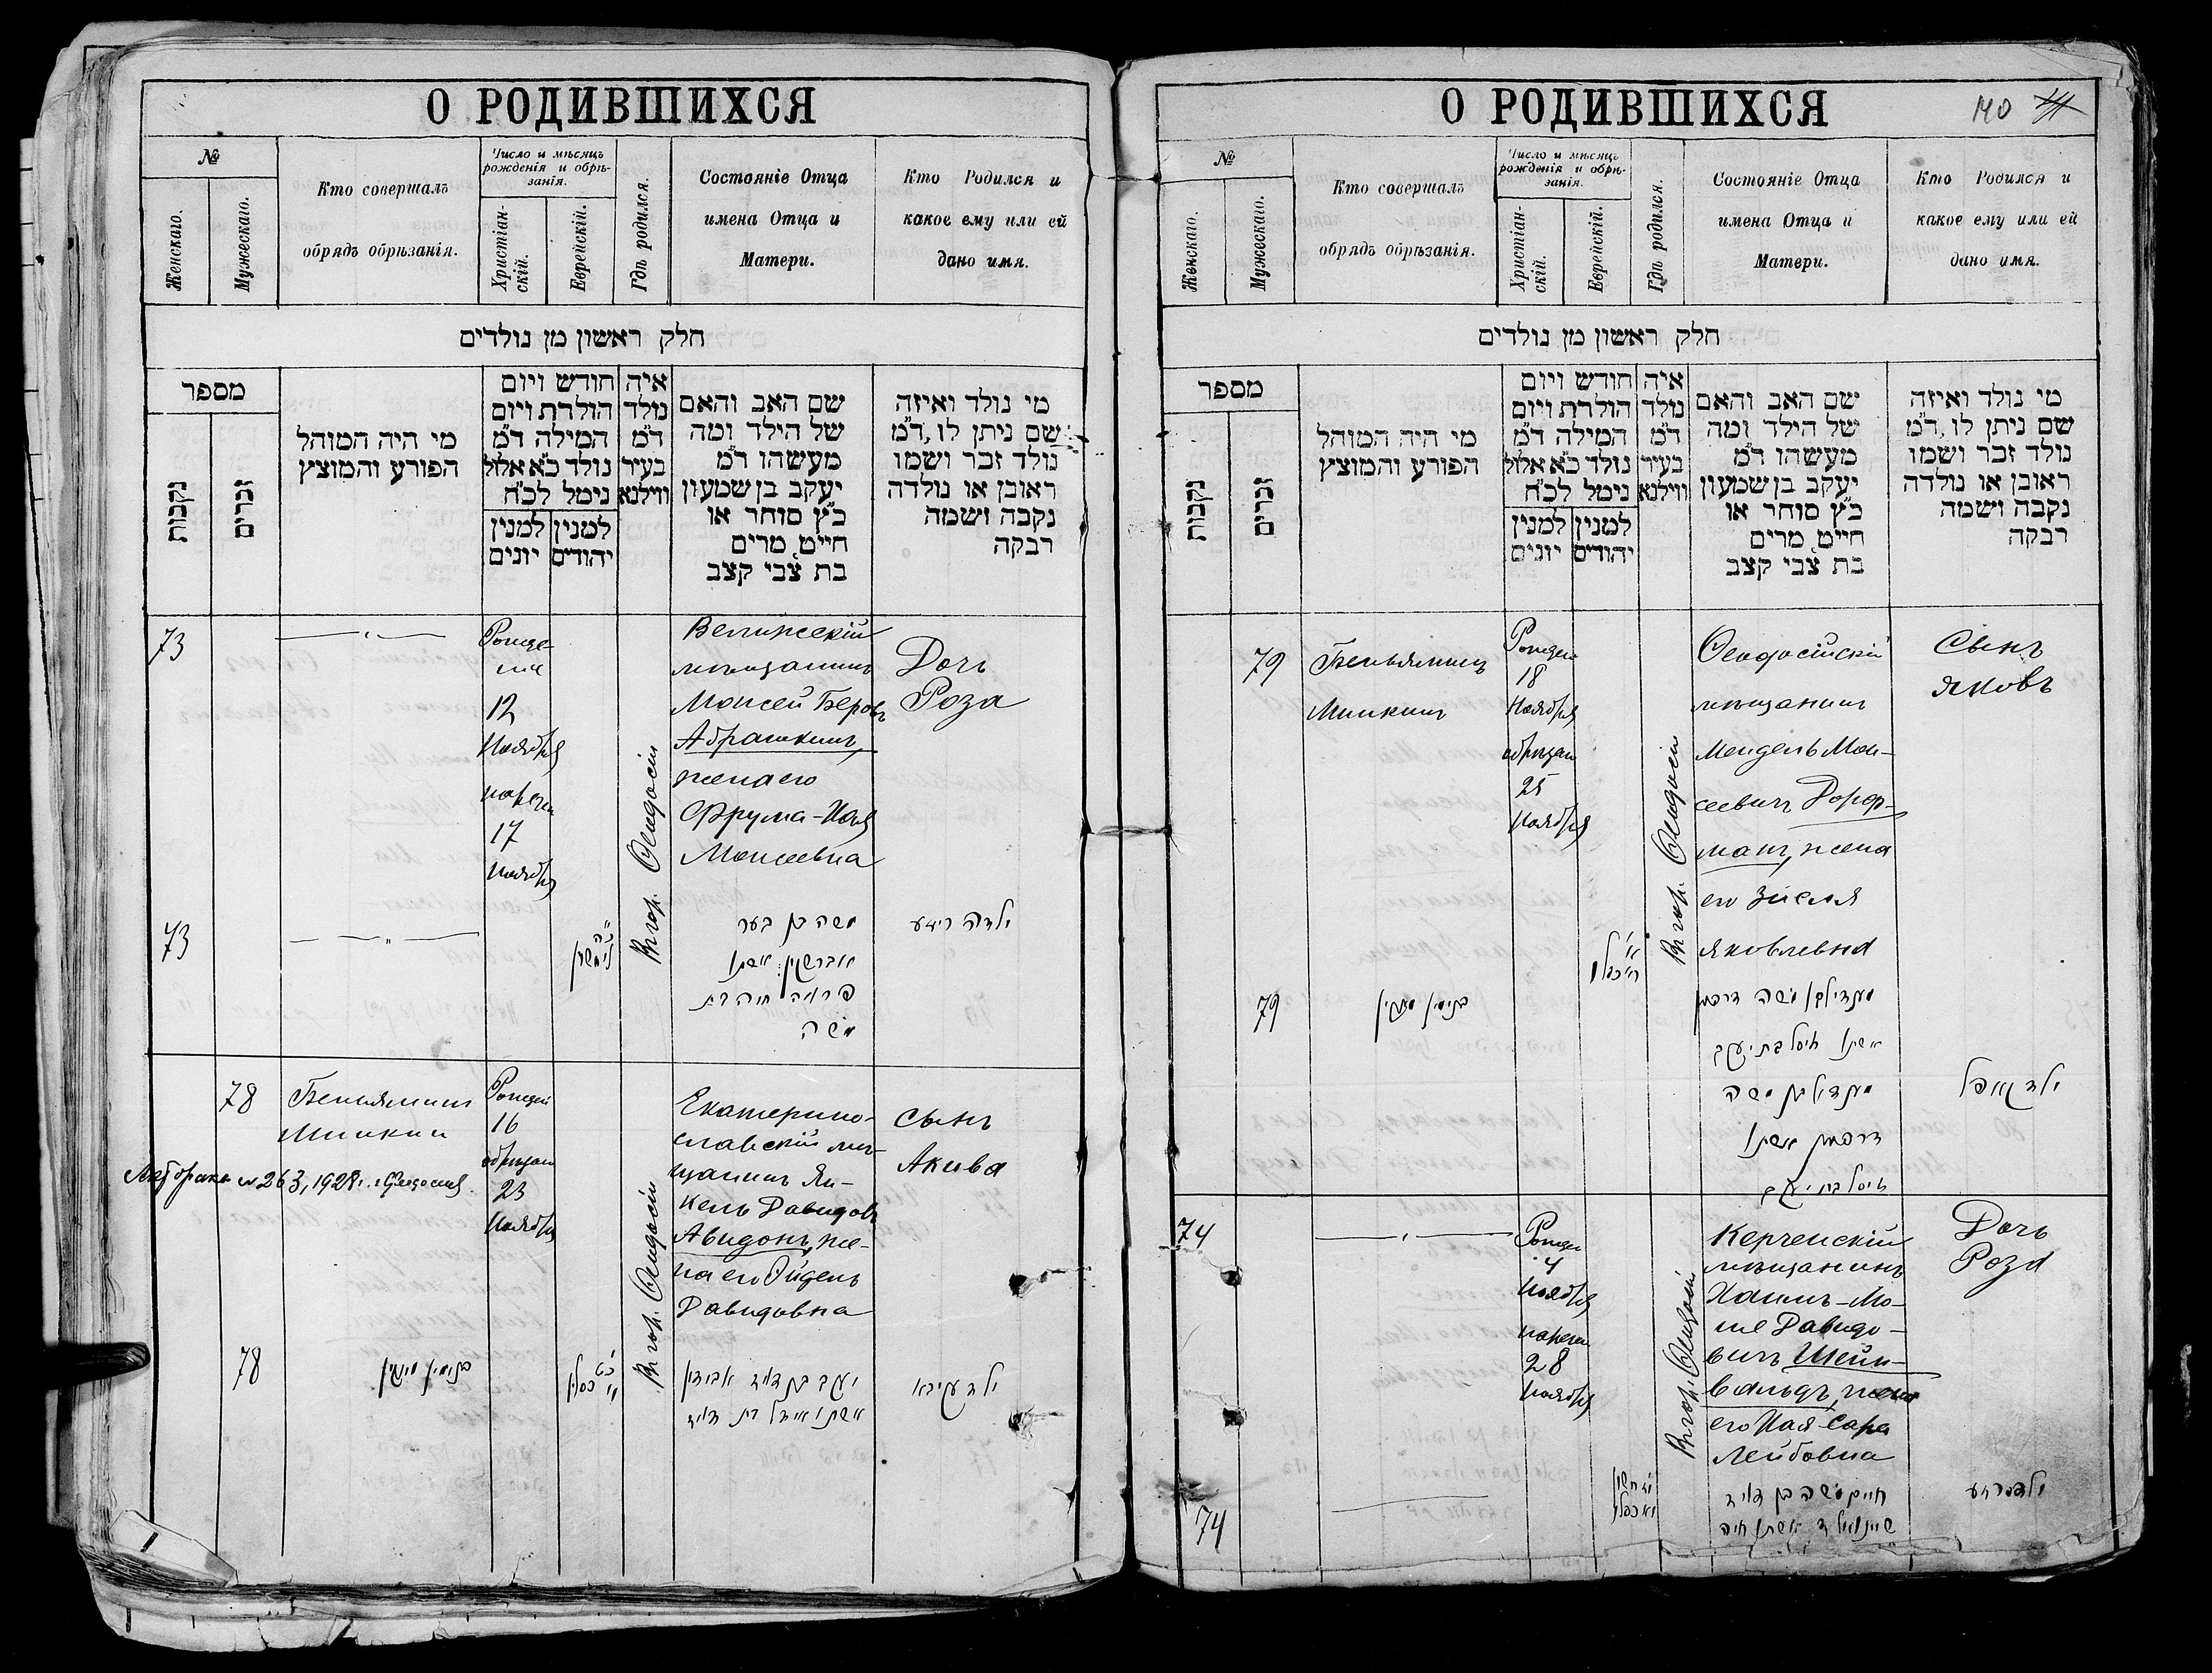 О РОДИВШИХСЯ
№
Женскаго.
Мужескаго.
Кто совершалъ
обрядъ обрѣзанія.
Число и мѣсяцъ
рожденія и обрѣ-
занія.
Христіан-
скій.
Еврейскій.
Гдѣ родился.
Состояніе Отца
имена Отца и
Матери.
Кто Родился и
какое ему или ей
дано имя.
חלק ראשון מן נולדים
מספר
נקבות
זכרים
מי היה המוהל
הפורע והמוצץ
חודש ויום
הולדת ויום
המילה ד״מ
נולד כ״א אלול
נימל לכ״ח
למנין
יהודים
למנין
יונים
איה
נולד
ד״מ
בעיר
ווילנא
שם האב והאם
של הילד ומה
מעשהו ד״מ
יעקב בן שמעון
כ״ץ סוחר או
חייט, מרים
בת צבי קצב
מי נולד ואיזה
שם ניתן לו, ד״מ
נולד זכר ושמו
ראובן או נולדה
נקבה ושמה
רבקה
73
12
Ноября
17
Ноября
Вг. гор. Ѳеодосіи
Велижскій
мѣщанинъ
Моисей Беровъ
Абрашкинъ,
жена его
Фрума-Хая
Моисеевна
Дочь
Роза
73
משה בן בער
אברשקין אשתו
פרומה חיה בת
משה
78
Беньяминъ
Минкин
16
обрѣзан
23
Ноября
Екатерино-
славскій мѣ-
щанинъ Ян-
кель Давидовъ
Авидонъ, же-
на его Эйдель
Давидовна
сынъ
Акива
№ 263, 1928 г. Феодосия
78
יעקב בן דוד אבידון
אשתו איידל בת דוד
ילד עקיבא
О РОДИВШИХСЯ
140
№
Женскаго.
Мужескаго.
Кто совершалъ
обрядъ обрѣзанія.
Число и мѣсяцъ
рожденія и обрѣ-
занія.
Христіан-
скій.
Еврейскій.
Гдѣ родился.
Состояніе Отца
имена Отца и
Матери.
Кто Родился и
какое ему или ей
дано имя.
חלק ראשון מן נולדים
מספר
נקבות
זכרים
מי היה המוהל
הפורע והמוצץ
חודש ויום
הולדת ויום
המילה ד״מ
נולד כ״א אלול
נימל לכ״ח
למנין
יהודים
למנין
יונים
איה
נולד
ד״מ
בעיר
ווילנא
שם האב והאם
של הילד ומה
מעשהו ד״מ
יעקב בן שמעון
כ״ץ סוחר או
חייט, מרים
בת צבי קצב
מי נולד ואיזה
שם ניתן לו, ד״מ
נולד זכר ושמו
ראובן או נולדה
נקבה ושמה
רבקה
79
Беньяминъ
Минкинъ
18
Ноября
обрѣзан
25
Ноября
Ѳеодосійскій
мѣщанинъ
Мендель Мои-
сеевичъ Дорф-
манъ, жена
его Зисля
Яковлевна
Сынъ
Яковъ
79
74
4
Ноября
28
Ноября
Керченскій
мѣщанинъ
Хаимъ-Мо-
ше Давидо-
вичъ Шейн-
вальдъ, жена
его Хая-Сара
Лейбовна
Дочь
Роза
74
חיים משה בן דוד
שיינוואלד אשתו חיה